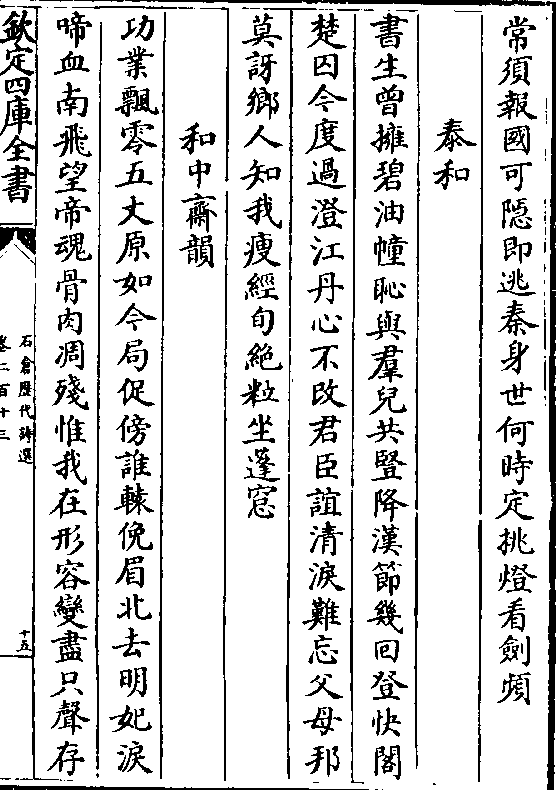 常須報國可隠即逃秦身世何時定挑燈看劍頻
泰和
書生曾擁碧油幢恥與羣兒共豎降漢節幾回登快閣
楚囚今度過澄江丹心不改君臣誼清淚難忘父母邦
莫訝鄉人知我瘦經旬絶粒坐蓬窓
和中齋韻
功業飄零五丈原如今局促傍誰轅俛眉北去明妃淚
啼血南飛望帝魂骨肉凋殘惟我在形容變盡只聲存
欽定四庫全書
石倉歴代詩選
卷二百十三
十五